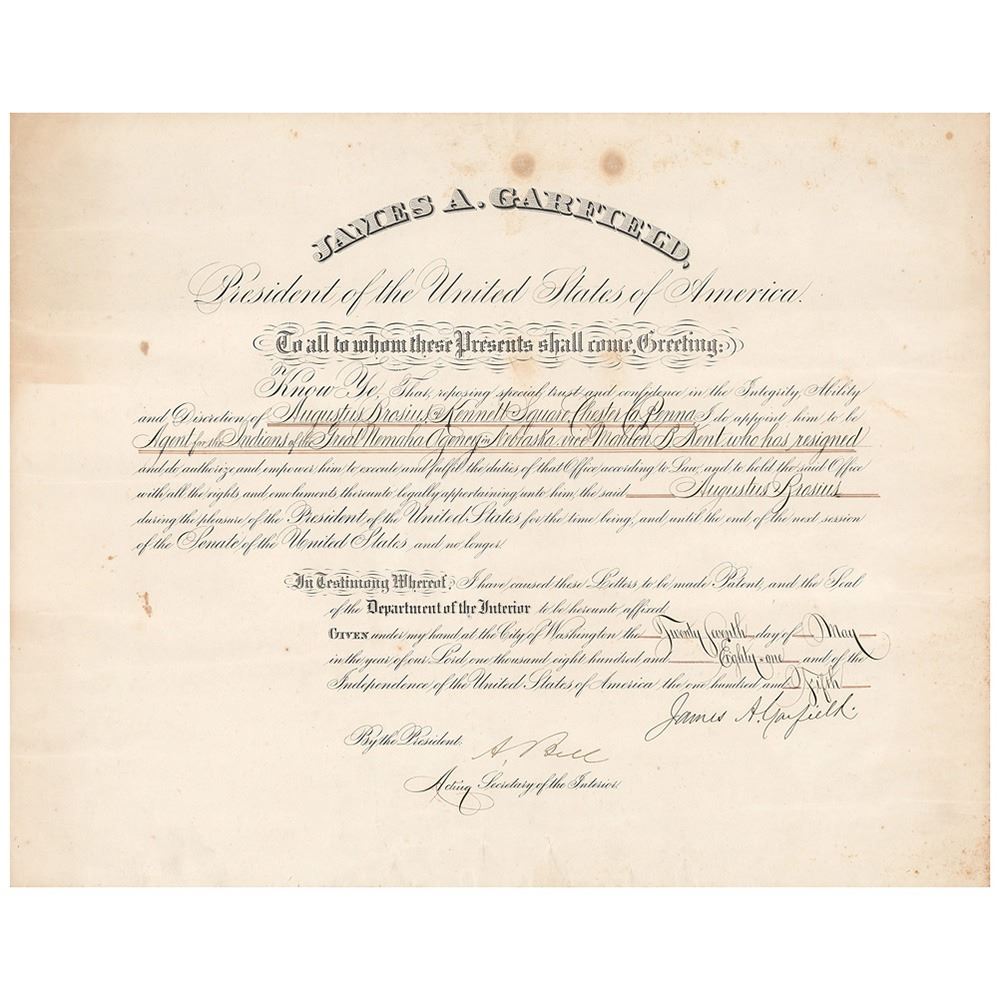 JAMES A. GARFIELD,
President of the United States of America.
To all to whom these Presents shall come, Greeting:
Know Ye, That, reposing special trust and confidence in the Integrity, Ability
and Discretion of Augustus Brosius of Kennett Square, Chester Co. Penna I do appoint him to be
Agent for the Indians of the Great Nemaha Agency in Nebraska vice B. Kent, who has resigned
and do authorize and empower him to execute and fulfil the duties of that Office according to Law, and to hold the said Office
with all the rights and emoluments thereunto legally appertaining unto him, the said Augustus Brosius
during the pleasure of the President of the United States for the time being, and until the end of the next session
of the Senate of the United States, and no longer.
In Testimony Whereof, I have caused these Letters to be made Patent, and the Seal
of the Department of the Interior to be hereunto affixed.
GIVEN under my hand at the City of Washington the Twenty Seventh day of May
in the year of our Lord one thousand eight hundred and Eighty-one and of the
Independence of the United States of America the one hundred and Fifth
James A. Garfield.
By the President.
A. Bell
Acting Secretary of the Interior.